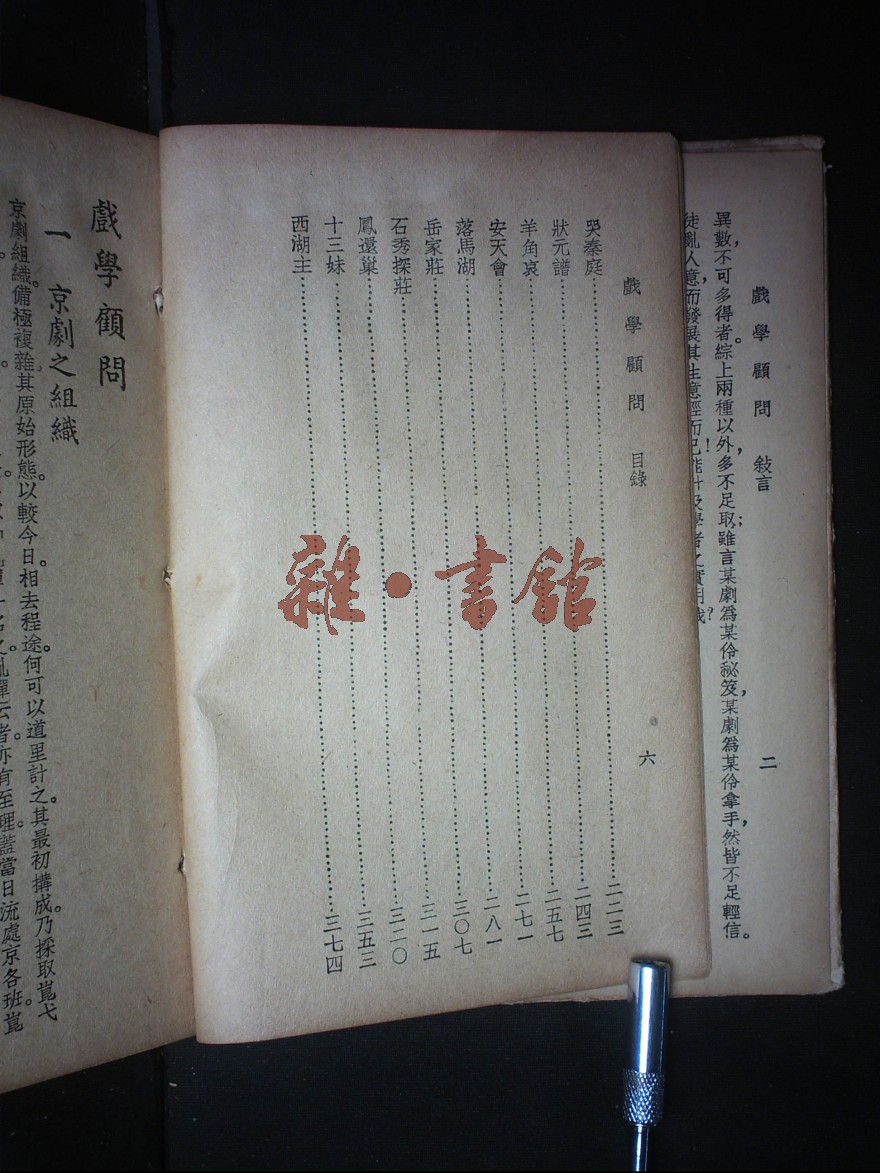 戲學顧問 敍言 二
異數，不可多得者。綜上兩種以外，多不足取；雖言某劇爲某伶秘笈，某劇爲某伶拿手，然皆不足輕信。
徒亂人意，而發展其生意經而已！
戲學顧問 目錄 六
哭秦庭……二二三
狀元譜……二四三
羊角哀……二五七
安天會……二七一
落馬湖……二八一
岳家莊……三〇七
石秀探莊……三一五
鳳還巢……三二〇
十三妹……三五三
西湖主……三七四
雜·書館
戲學顧問
一 京劇之組織
京劇組織。備極複雜其原始形態。以較今日。相去程途。何可以道里計之。其最初搆成。乃採取崑弋
亂彈云者。亦有至理。蓋當日流處京各班。崑